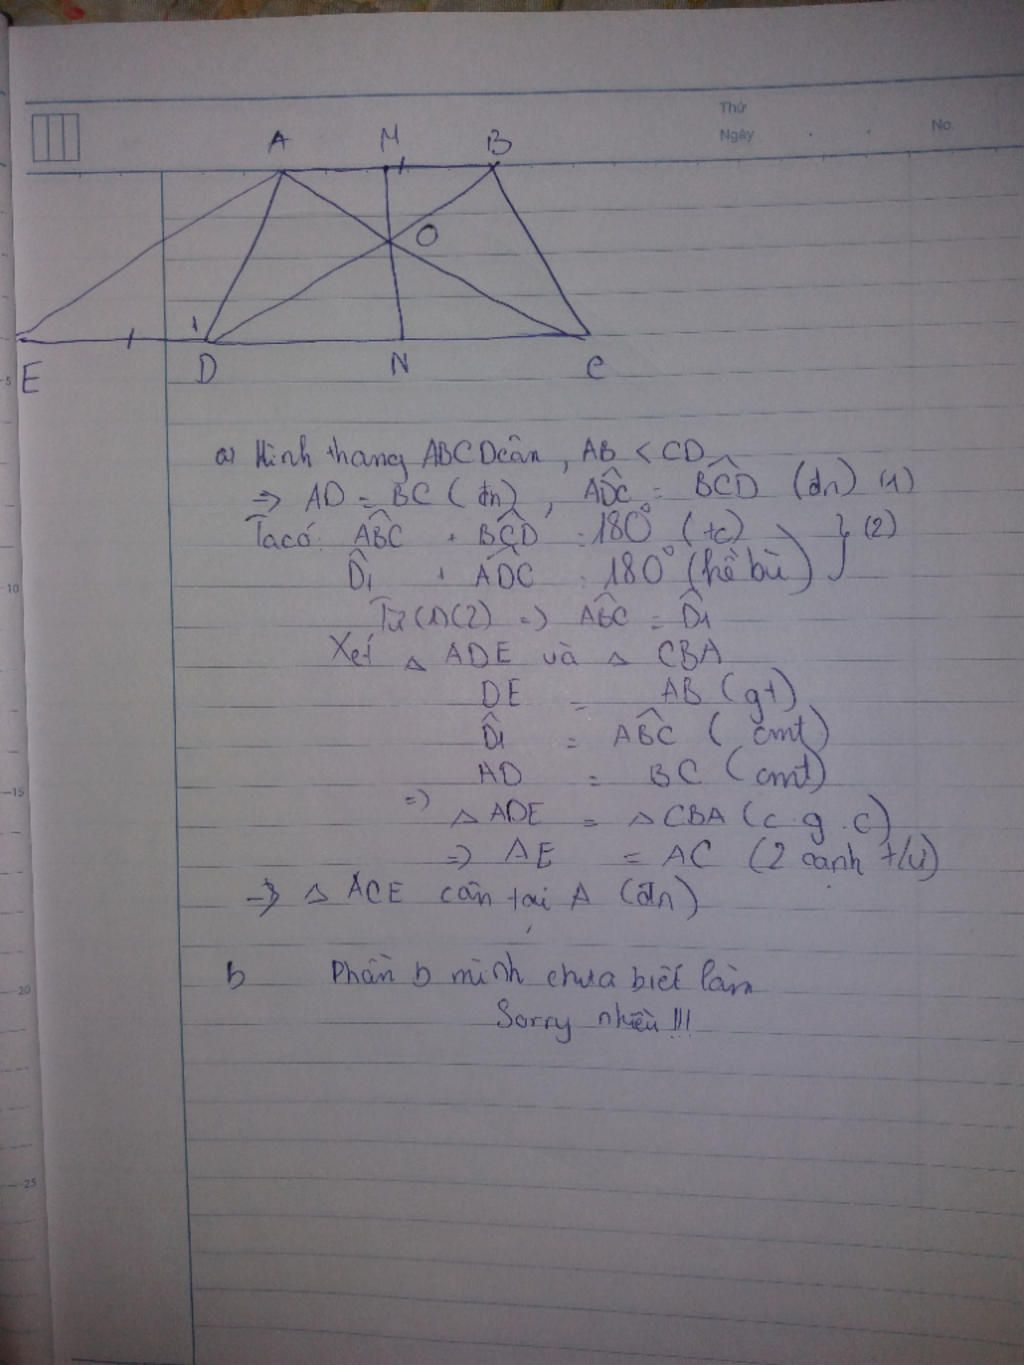 Thứ
Ngày
No.
A M B
O
1
E D N C
a) Hình thang ABCD cân, AB < CD
=> AD = BC (đn), ADC^ = BCD^ (đn) (1)
Ta có: ABC^ + BCD^ = 180° (tc) } (2)
D1^ + ADC^ = 180° (kề bù)
Từ (1)(2) => ABC^ = D1^
Xét △ ADE và △ CBA
DE = AB (gt)
D1^ = ABC^ (cmt)
AD = BC (cmt)
=> △ ADE = △ CBA (c.g.c)
=> AE = AC (2 cạnh t/ứ)
=> △ ACE cân tại A (đn)
b Phần b mình chưa biết làm
Sorry nhiều !!!
5
10
15
20
25